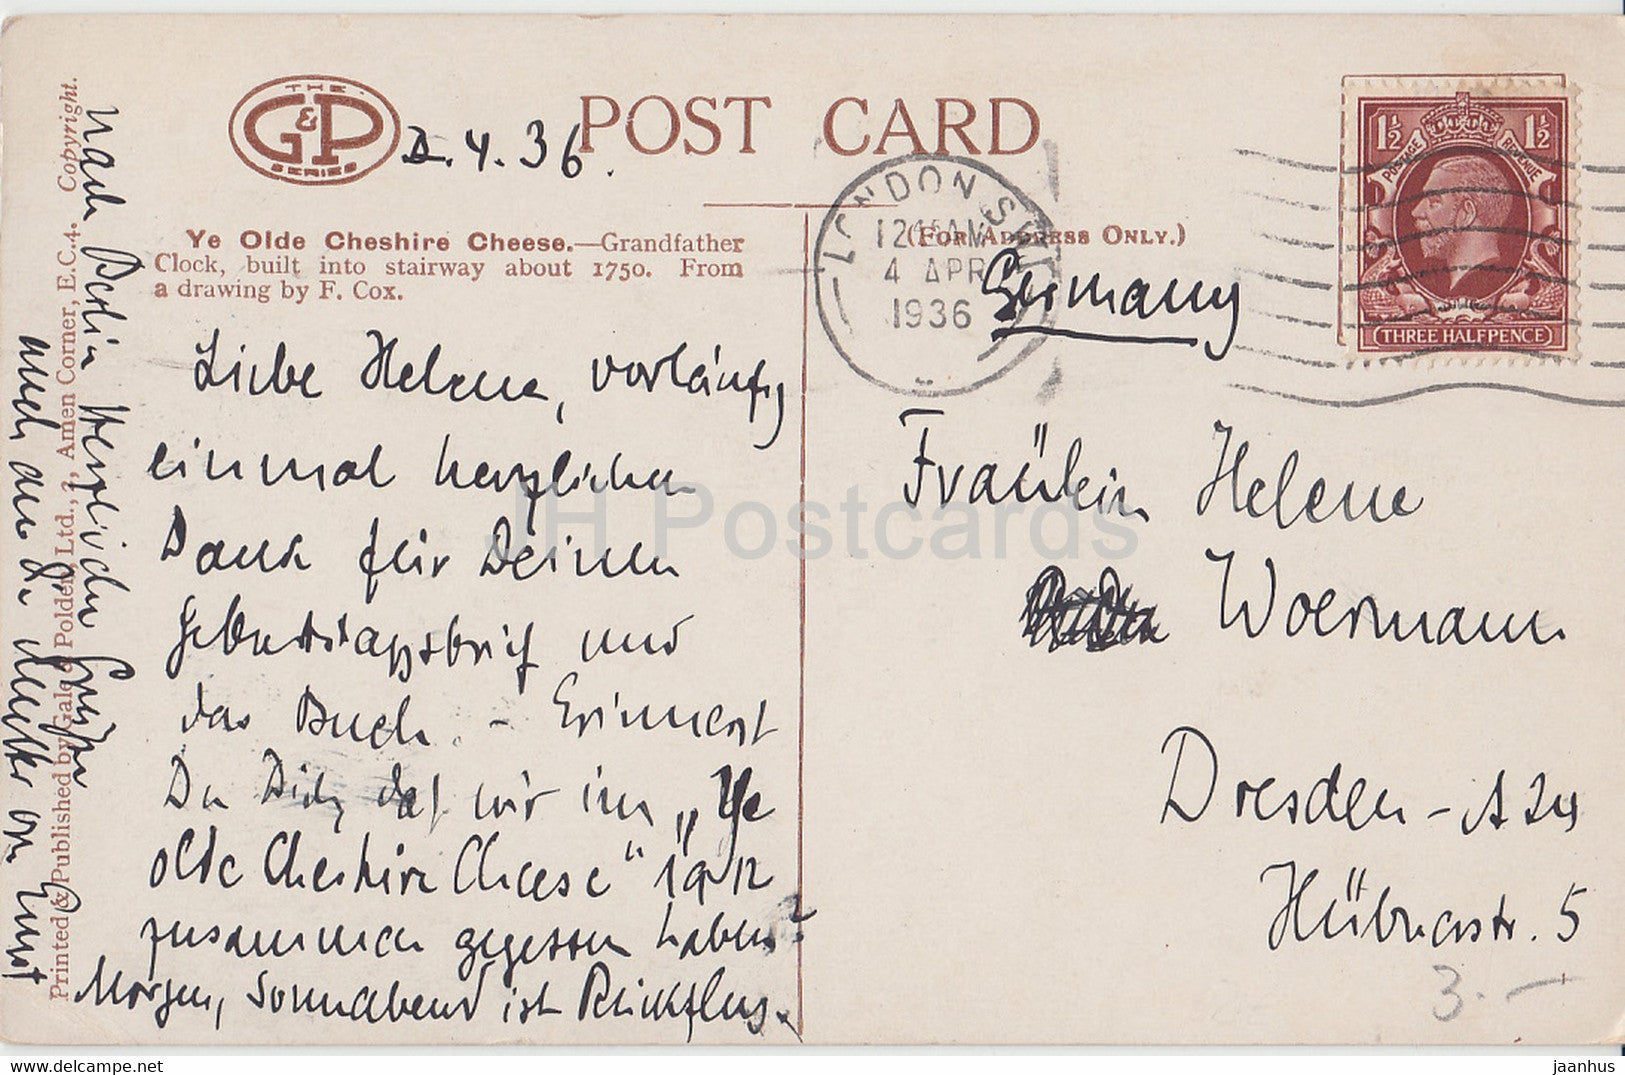 THE
G&P
SERIES
POST CARD
.4.36.
Ye Olde Cheshire Cheese.—Grandfather
Clock, built into stairway about 1750. From
a drawing by F. Cox.
Liebe Helene, vorläufig
einmal herzlichen
Dank für Deinen
Geburtstagsbrief und
das Buch. – Erinnerst
Du Dich, daß wir im „Ye
olde Cheshire Cheese" 1912
zusammen gegessen haben?
Morgen, Sonnabend ist Rückflug.
nach Berlin. Herzliche Grüße
auch an die Mutter von Ernst
Printed & Published by Gale & Polden, Ltd., 2, Amen Corner, E.C.4. Copyright.
LONDON S.W.
12 15 AM
4 APR
1936
(For Address Only.)
POSTAGE REVENUE
1½ 1½
THREE HALFPENCE
Germany
Fräulein Helene
Woermann
Dresden-A 24
Hübnerstr. 5
3.-
JH Postcards
jaanhus